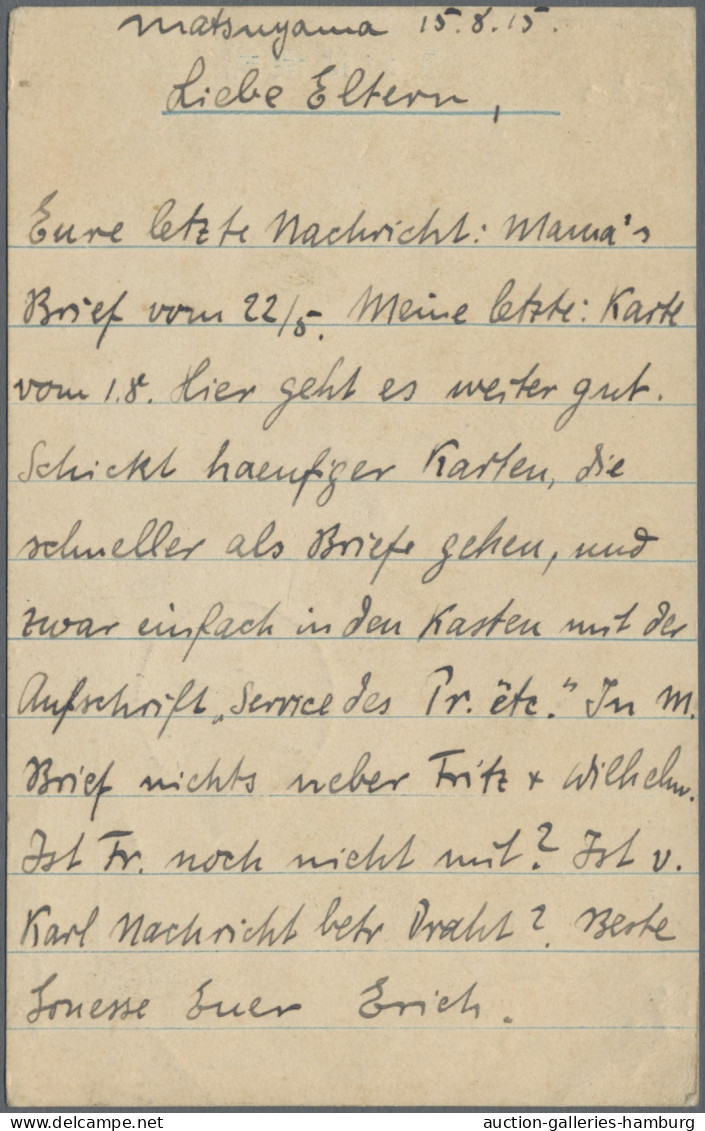 Matsuyama 15.8.15.
Liebe Eltern,
Eure letzte Nachricht: Mama's
Brief vom 22/5. Meine letzte: Karte
vom 1.8. Hier geht es weiter gut.
Schickt haeufiger Karten, die
schneller als Briefe gehen, und
zwar einfach in den Kasten mit der
Aufschrift „Service des Pr. etc.“ In M.
Brief nichts ueber Fritz + Wilhelm.
Ist Fr. noch nicht mit? Ist v.
Karl Nachricht betr Draht? Beste
Gruesse Euer Erich.
auction-galleries-hamburg